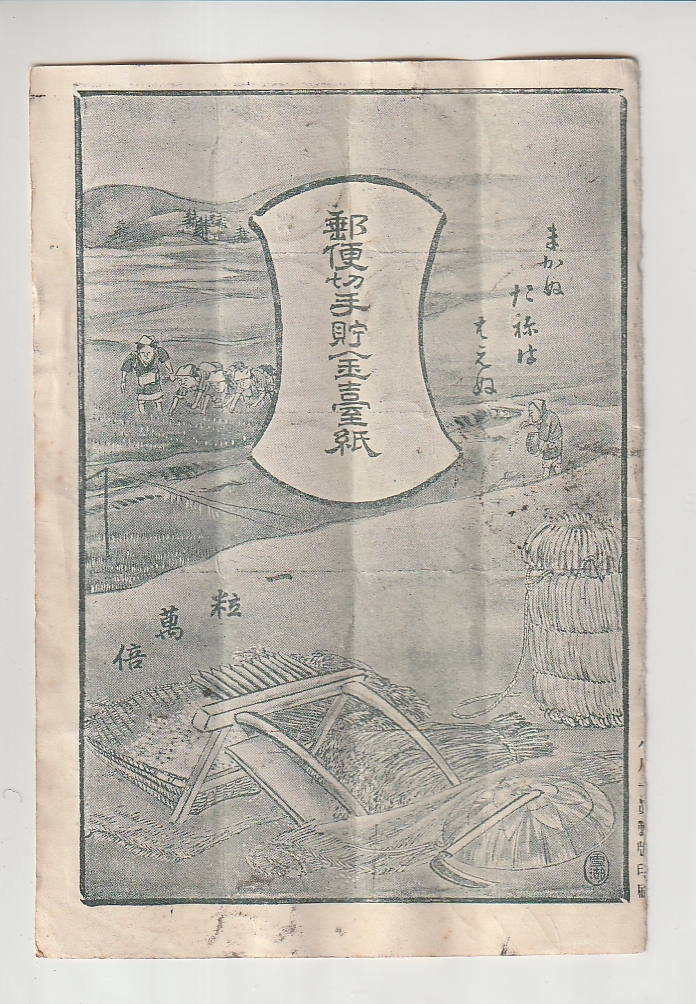 郵便切手貯金臺紙
まかぬ
たねは
はえぬ
一粒萬倍
雪湖